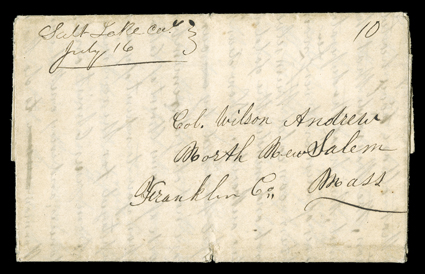 Salt Lake Cay
July 16
10
Col. Wilson Andrew
North New Salem
Franklin Co. Mass